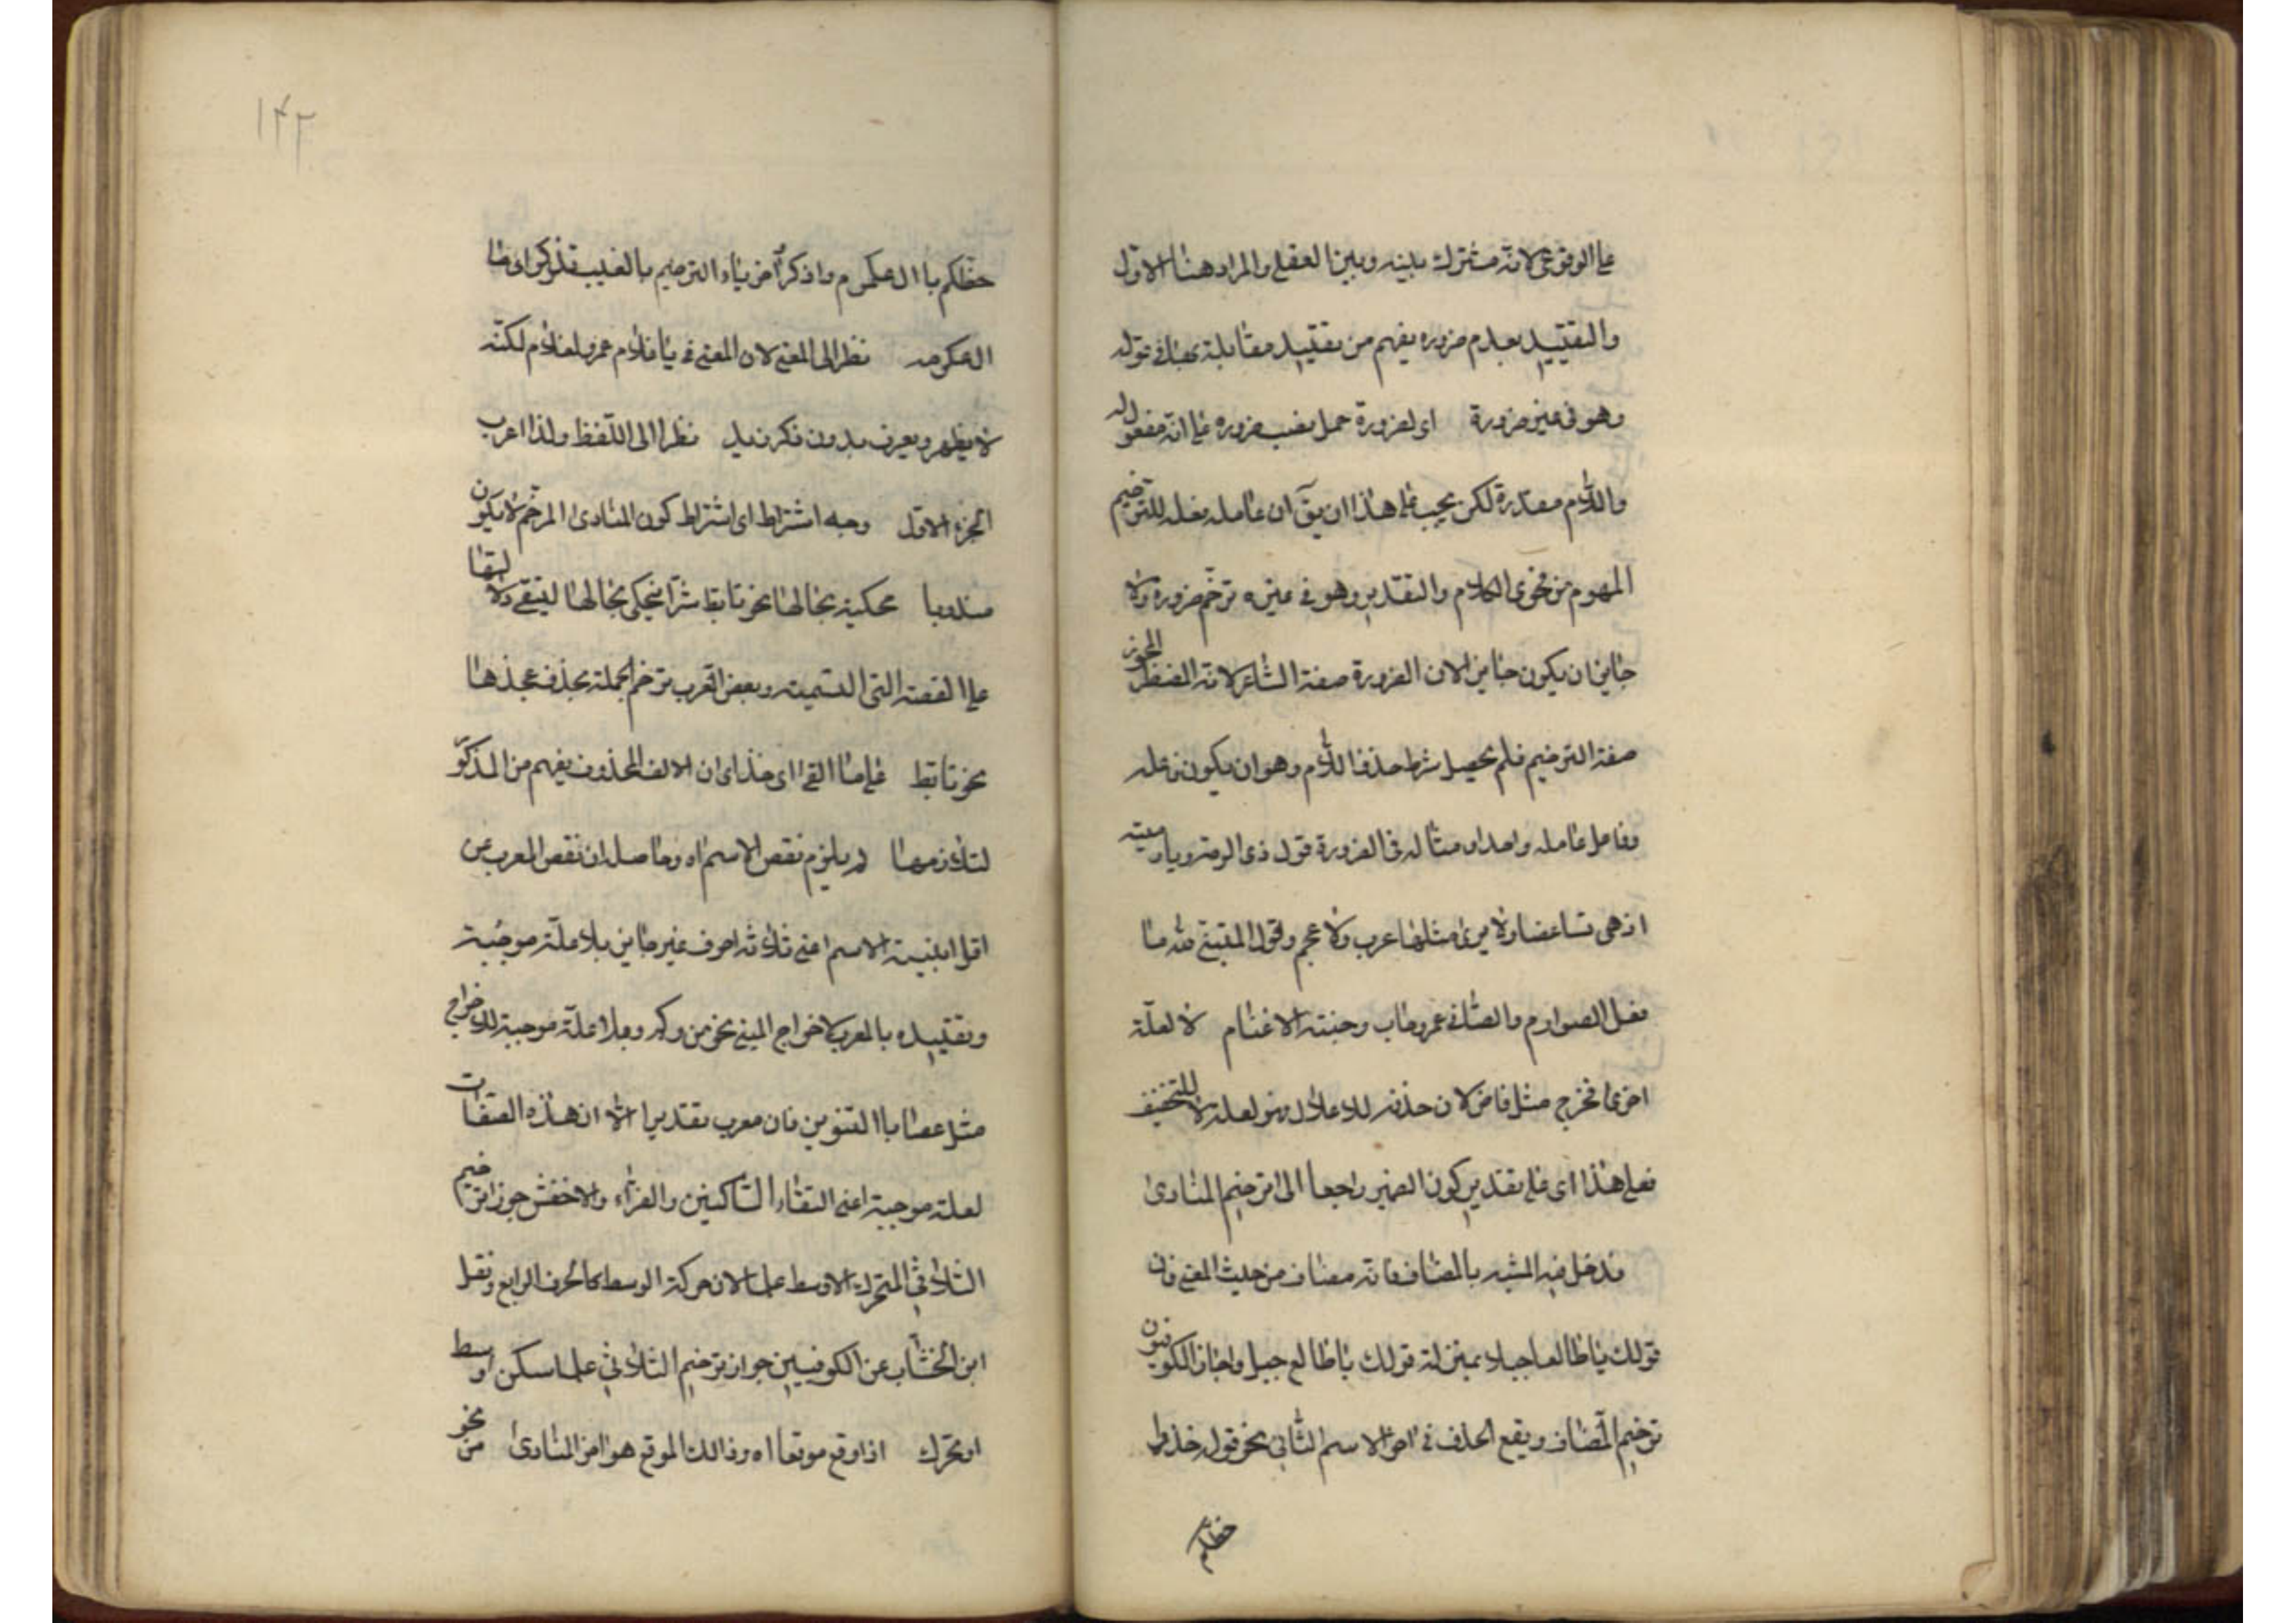 على الوقوعى لانه مشترك بينه وبين العقلى والمراد هنا الاول
والتقييد بعدم ضروره يفهم من تقييد مقابلة بقوله
وهو فى غيره ضرورة اى لضرورة حمل نصب ضروره على انه مفعول له
واللام مقدرة لكن يجب على هذا ان يق ان عامله فعله للترخيم
المفهوم من فحوى الكلام والتقدير وهو فى غيره ترخم ضروره ولا
جايز ان يكون جايز الان الضرورة صفة الشاعر لانه المضطر المجوز
صفة الترخيم فلم يحصل شرط حذف اللام وهو ان يكون فاعله
وفاعل عامله واحدا، مثاله فى الضرورة قول ذى الرمة ديار مية
اذ هى تساعفنا ولا يرى مثلها عرب ولا عجم وقول المتنبى لله ما
فعل الصوارم والقنا فى عمرو حاب وضبة الاغتام لا لعلة
اخرى فخرج مثل قاض لان حذفه للاعلال فهو لعلة لا للتخفيف
فعلى هذا اى على تقدير كون الضمير راجعا الى ترخيم المنادى
فدخل فيه المشبه بالمضاف فانه مضاف من حيث المعنى فان
قولك ياطالعا جبلا بمنزلة قولك ياطالع جبل واجاز الكوفيون
ترخيم المضاف ويقع الحذف فى اخر الاسم الثانى نحو قوله خذوا
حظكم
حظكم يا ال عكرم واذكروا
العكرمه نظرا الى المعنى لان المعنى فى ياغلام عمرو لغلام لكنه
لا يظهر ويعرف بدون ذكر زيد نظرا الى اللفظ ولذا اعرب
الجزء الاول وجه اشتراط اى اشتراط كون المنادى المرخم لا يكون
مندوبا محكية بحالها نحو تابط شرا فيحكى بحالها لبقى دلالتها
على القصة التى التسمية وبعض العرب ترخم الجملة بحذف عجزها
نحو تابط على ما القى اى حذاى ان الالف المحذوف يفهم من المذكور
لتلازمهما لم يلزم نقص الاسم اه وحاصله ان نقص المعرب عن
اقل ابنية الاسم اعنى ثلاثة احرف غير جايز بلا علة موجبة
وتقييده بالمعرب لاخراج المبنى نحو من وكم وبلا علة موجبة للاخراج
مثل عصا بالتنوين فان معرب تقديرا الا ان هذه الصفات
لعلة موجبة اعنى التقاء الساكنين والفراء والاخفش جوز ترخيم
الثلاثى المتحرك الاوسط علما لان حركة الوسط كالحرف الرابع ونقل
ابن الخشاب عن الكوفيين جواز ترخيم الثلاثى علما سكن اوسط
او تحرك اذا وقع موقعا اه وذالك الموقع هو اخر المنادى نحو من
١٤٢